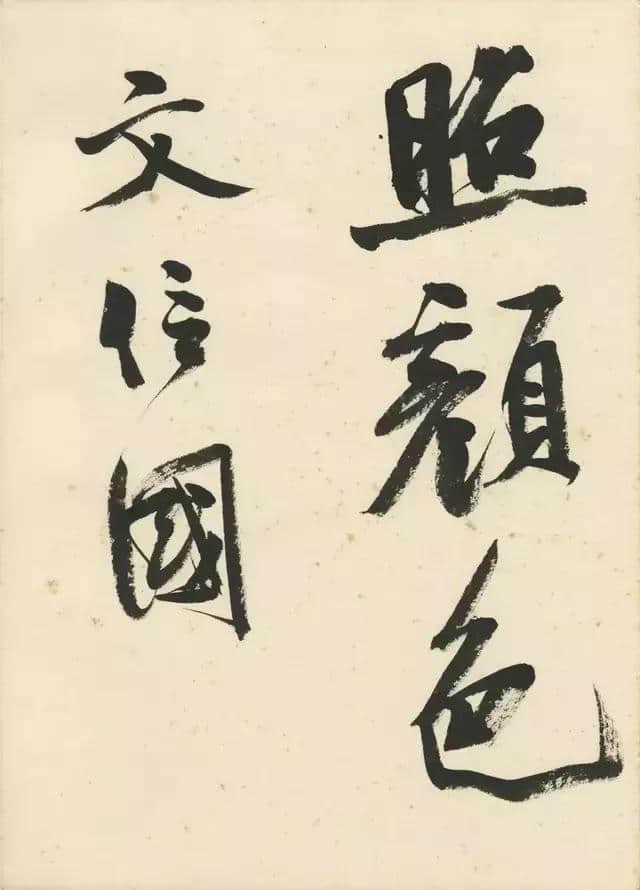 照顔色
文信國